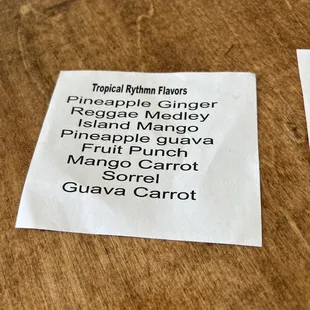 Tropical Rythmn Flavors
Pineapple Ginger
Reggae Medley
Island Mango
Pineapple guava
Fruit Punch
Mango Carrot
Sorrel
Guava Carrot